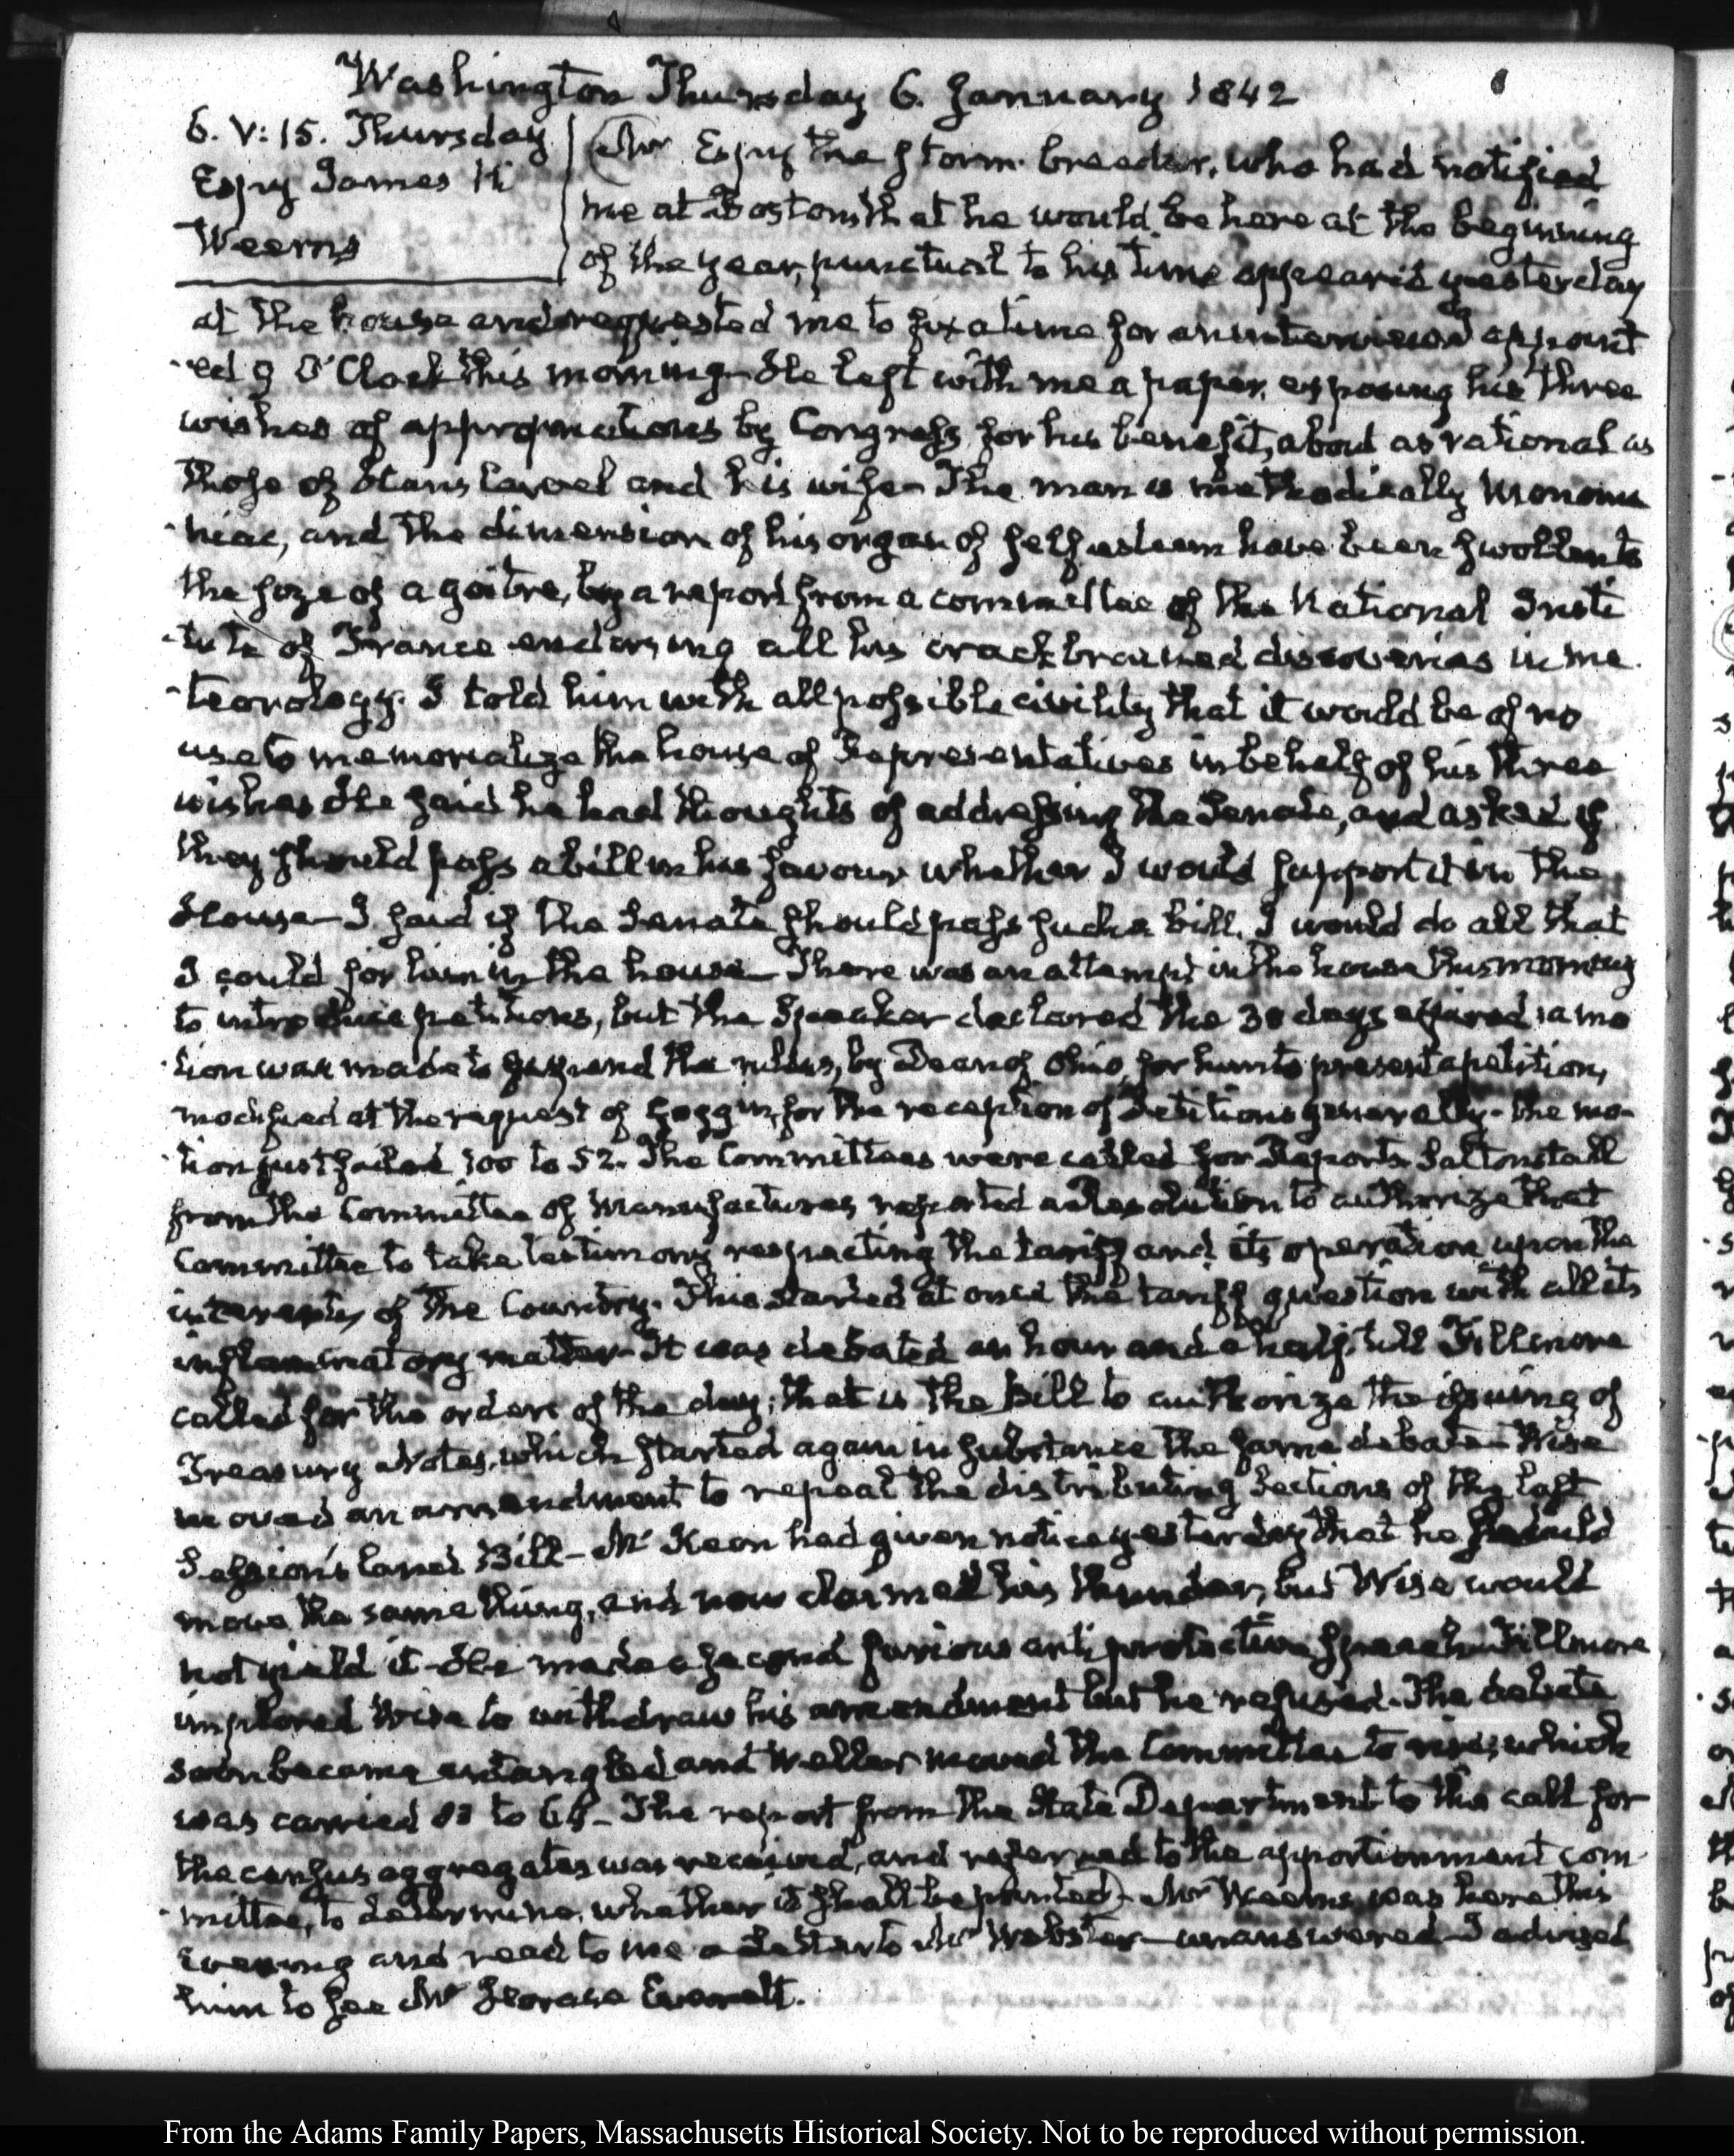 Washington Thursday 6. January 1842
6. V:15. Thursday
Espy James H
Weems
Mr Espy the storm breeder, who had notified
me at Boston, that he would be here at the beginning
of the year, punctual to his time appeared yesterday
at the house and requested me to fix a time for an interview I appoint
-ed 9 O'Clock this morning. He left with me a paper, exposing his three
wishes of appropriations by Congress for his benefit, about as rational as
those of Hans Carvel and his wife. The man is methodically monoma
-niac, and the dimension of his organ of self esteem have been swollen to
the size of a goitre, by a report from a committee of the National Insti
-tute of France endorsing all his crack brained discoveries in me
-teorology. I told him with all possible civility that it would be of no
use to memorialize the house of Representatives in behalf of his three
wishes He said he had thoughts of addressing the Senate, and asked if
they should pass a bill in his favour whether I would support it in the
House- I said if the Senate should pass such a bill, I would do all that
I could for him in the house- There was an attempt in the house this morning
to introduce petitions, but the Speaker declared the 30 days expired; a mo
-tion was made to suspend the rules, by Dean of Ohio, for him to present a petition,
modified at the request of Goggin, for the reception of Petitions generally- the mo-
-tion just failed 100 to 52. The Committees were called for Reports. Saltonstall
from the Committee of Manufactures reported a Resolution to authorize that
Committee to take testimony respecting the tariff and its operation upon the
interests of the Country. This started at once the tariff question with all its
inflammatory matter- It was debated an hour and a half, till Fillmore
called for the orders of the day; that is the Bill to authorize the issuing of
Treasury Notes, which started again in substance the same debate- Wise
moved an amendment to repeal the distributing Sections of the last
Session's land Bill- McKeon had given notice yesterday that he should
move the same thing, and now claimed his thunder, but Wise would
not yield it- He made a second furious anti protective speech- Fillmore
implored Wise to withdraw his amendment but he refused. The debate
soon became entangled and Weller moved the Committee to rise; which
was carried to The report from the State Department to the call for
the census aggregates was received, and referred to the apportionment com
-mittee, to determine, whether it shall be printed)- Mr Weems was here this
Evening and read to me a Letter to Mr Webster- unanswered- I advised
him to see Mr Horace Everett.
From the Adams Family Papers, Massachusetts Historical Society. Not to be reproduced without permission.